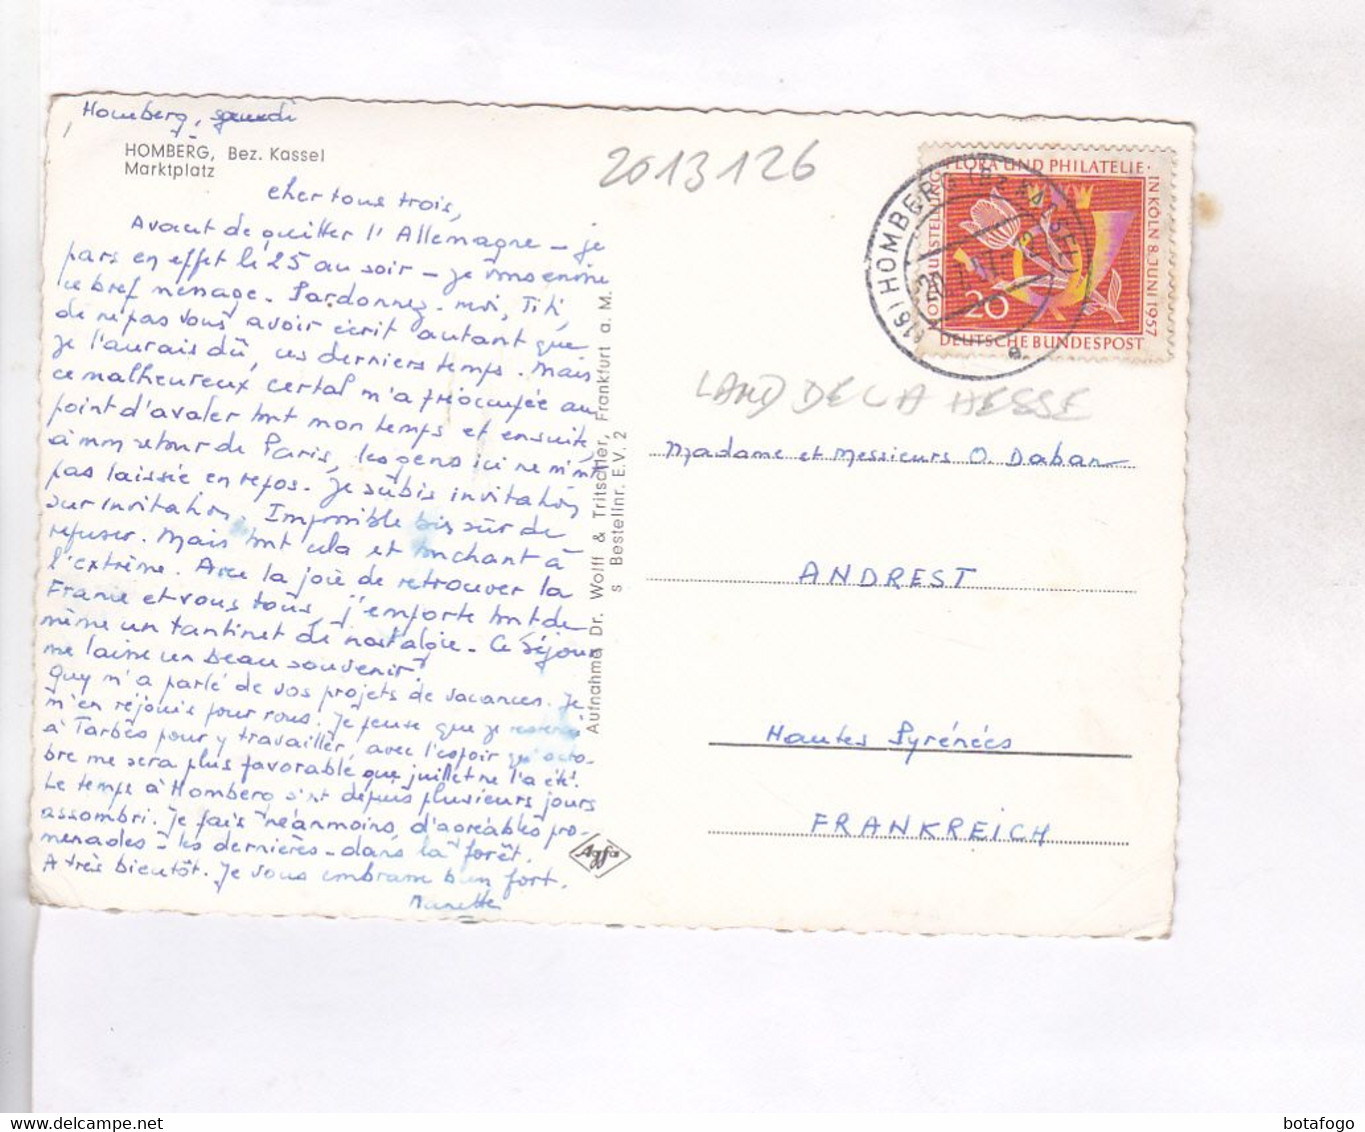 Homberg,
HOMBERG, Bez. Kassel
Marktplatz
cher tous trois,
Avant de quitter l'Allemagne - je
pars en effet le 25 au soir - je vous envoie
ce bref message. Pardonnez-moi, Titi,
de ne pas vous avoir écrit autant que
je l'aurais dû, ces derniers temps. Mais
ce malheureux certal m'a préoccupée au
point d'avaler tout mon temps et ensuite,
à mon retour de Paris, les gens ici ne m'ont
pas laissée en repos. Je subis invitation
sur invitation. Impossible bien sûr de
refuser. Mais tout cela est touchant à
l'extrême. Avec la joie de retrouver la
France et vous tous, j'emporte tout de
même un tantinet de nostalgie. Ce séjour
me laisse un beau souvenir!
Guy m'a parlé de vos projets de vacances. Je
m'en réjouis pour vous. Je pense que je
à Tarbes pour y travailler, avec l'espoir qu'octo-
bre me sera plus favorable que juillet ne l'a été!
Le temps à Homberg s'est depuis plusieurs jours
assombri. Je fais néanmoins, d'agréables pro-
menades - les dernières - dans la forêt.
A très bientôt. Je vous embrasse bien fort.
Aufnahme Dr. Wolff & Tritschler, Frankfurt a. M.
s Bestellnr. E.V. 2
Agfa
2013126
AUSSTELLUNG FLORA UND PHILATELIE · IN KÖLN 8. JUNI 1957
20
DEUTSCHE BUNDESPOST
(16) HOMBERG (Bz. KASSEL)
e
LAND DE LA HESSE
Madame et Messieurs O. Daban
ANDREST
Hautes Pyrénées
FRANKREICH
botafogo